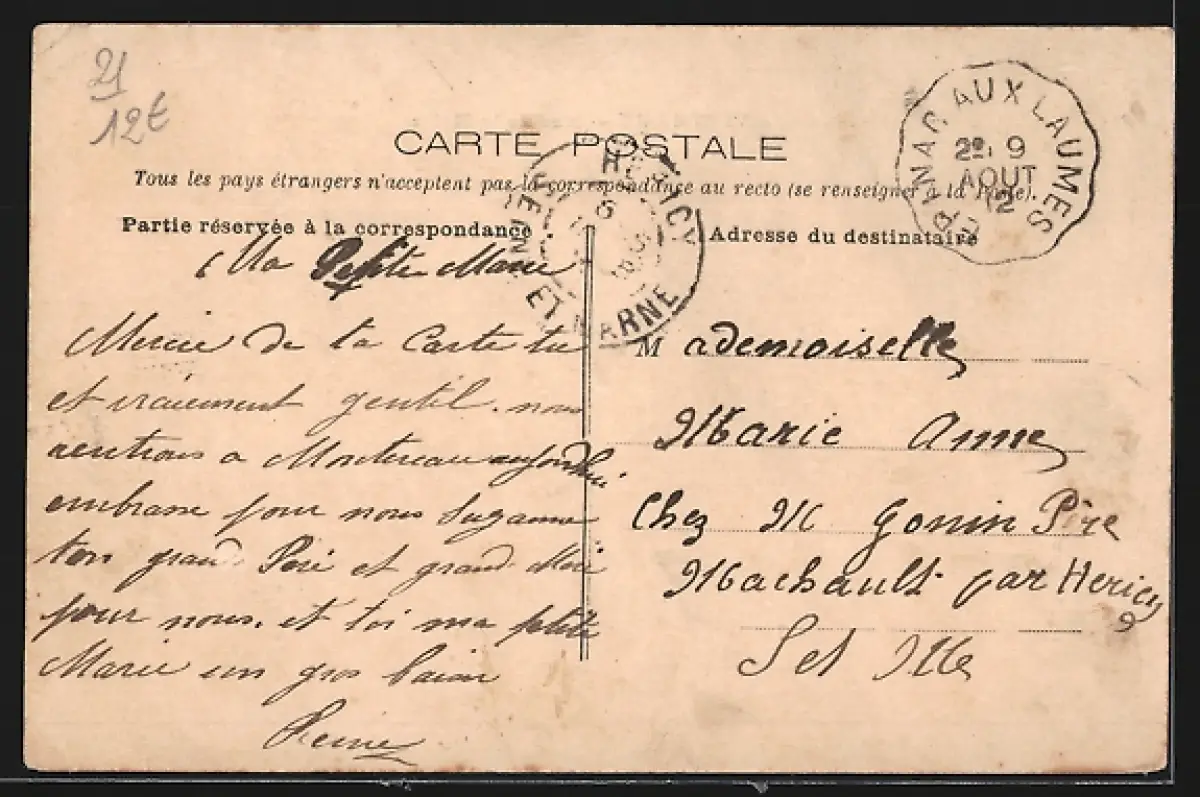 21
12€
CARTE POSTALE
Tous les pays étrangers n'acceptent pas la correspondance au recto (se renseigner à la Poste).
Partie réservée à la correspondance
Adresse du destinataire
AUX LAUMES
2º 9
AOUT
12
HERICY
SEINE ET MARNE
Ma Petite Marie
Mercie de la Carte tu
et vraiement gentil. nous
rentrons a Montereau aujourdhui
embrasse pour nous Suzanne
ton grand Père et grand Mère
pour nous. et toi ma petite
Marie un gros baiser
Reine
M ademoiselle
Marie Anne
Chez M Gonin Père
Machault par Hericy
S et Me